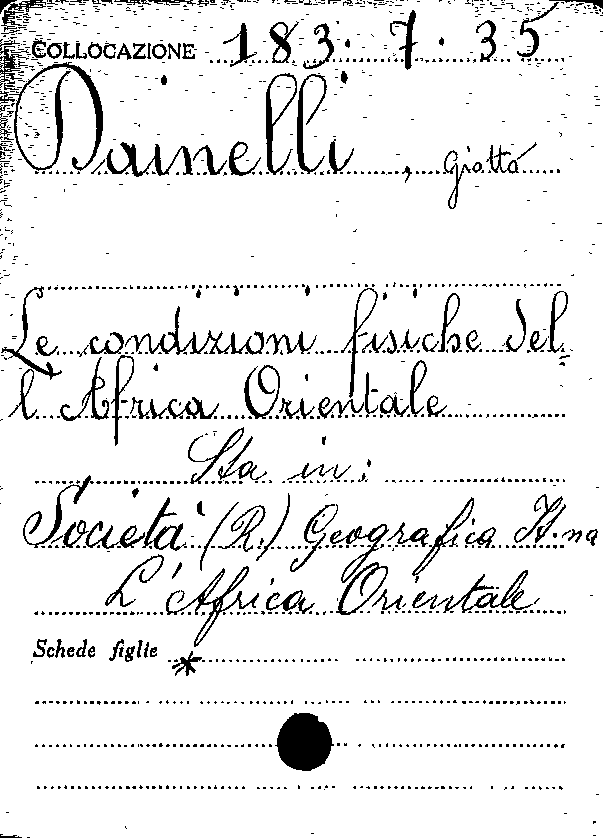 COLLOCAZIONE 183. 7. 35
Dainelli, Giotto
Le condizioni fisiche del=
l'Africa Orientale
Sta in:
Società (R.) Geografica It.na
L'Africa Orientale
Schede figlie *